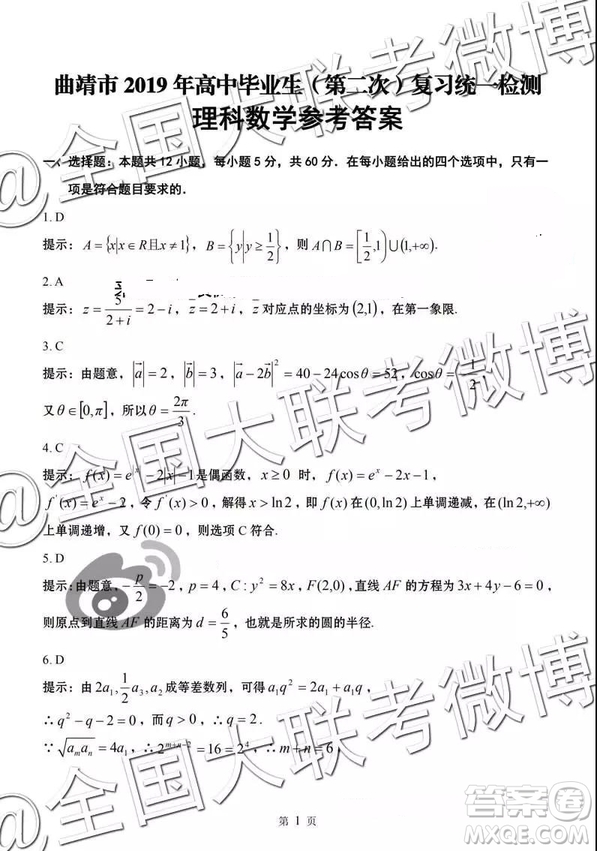 曲靖市 2019 年高中毕业生（第二次）复习统一检测
理科数学参考答案
一、选择题：本题共12小题，每小题5分，共60分．在每小题给出的四个选项中，只有一
项是符合题目要求的．
1. D
提示：A={x|x∈R且x≠1}，B={y|y≥1/2}，则 A∩B=[1/2,1)∪(1,+∞)．
2. A
提示：z=5/(2+i)=2-i，z̄=2+i，z̄对应点的坐标为(2,1)，在第一象限．
3. C
提示：由题意，|a⃗|=2，|b⃗|=3，|a⃗-2b⃗|²=40-24cosθ=52，cosθ=-1/2，
又θ∈[0,π]，所以θ=2π/3．
4. C
提示：f(x)=eˣ-2|x|-1是偶函数，x≥0 时，f(x)=eˣ-2x-1，
f'(x)=eˣ-2，令f'(x)>0，解得x>ln2，即f(x)在(0,ln2)上单调递减，在(ln2,+∞)
上单调递增，又f(0)=0，则选项C符合．
5. D
提示：由题意，-p/2=-2，p=4，C:y²=8x，F(2,0)，直线AF的方程为3x+4y-6=0，
则原点到直线AF的距离为d=6/5，也就是所求的圆的半径．
6. D
提示：由2a₁,1/2a₃,a₂成等差数列，可得a₁q²=2a₁+a₁q，
∴q²-q-2=0，而q>0，∴q=2，
∵√(aₘaₙ)=4a₁，∴2ᵐ⁺ⁿ⁻²=16=2⁴，∴m+n=6，
第 1 页
@全国大联考微博
@全国大联考微博
@全国大联考微博
答案圈
MXQE.COM